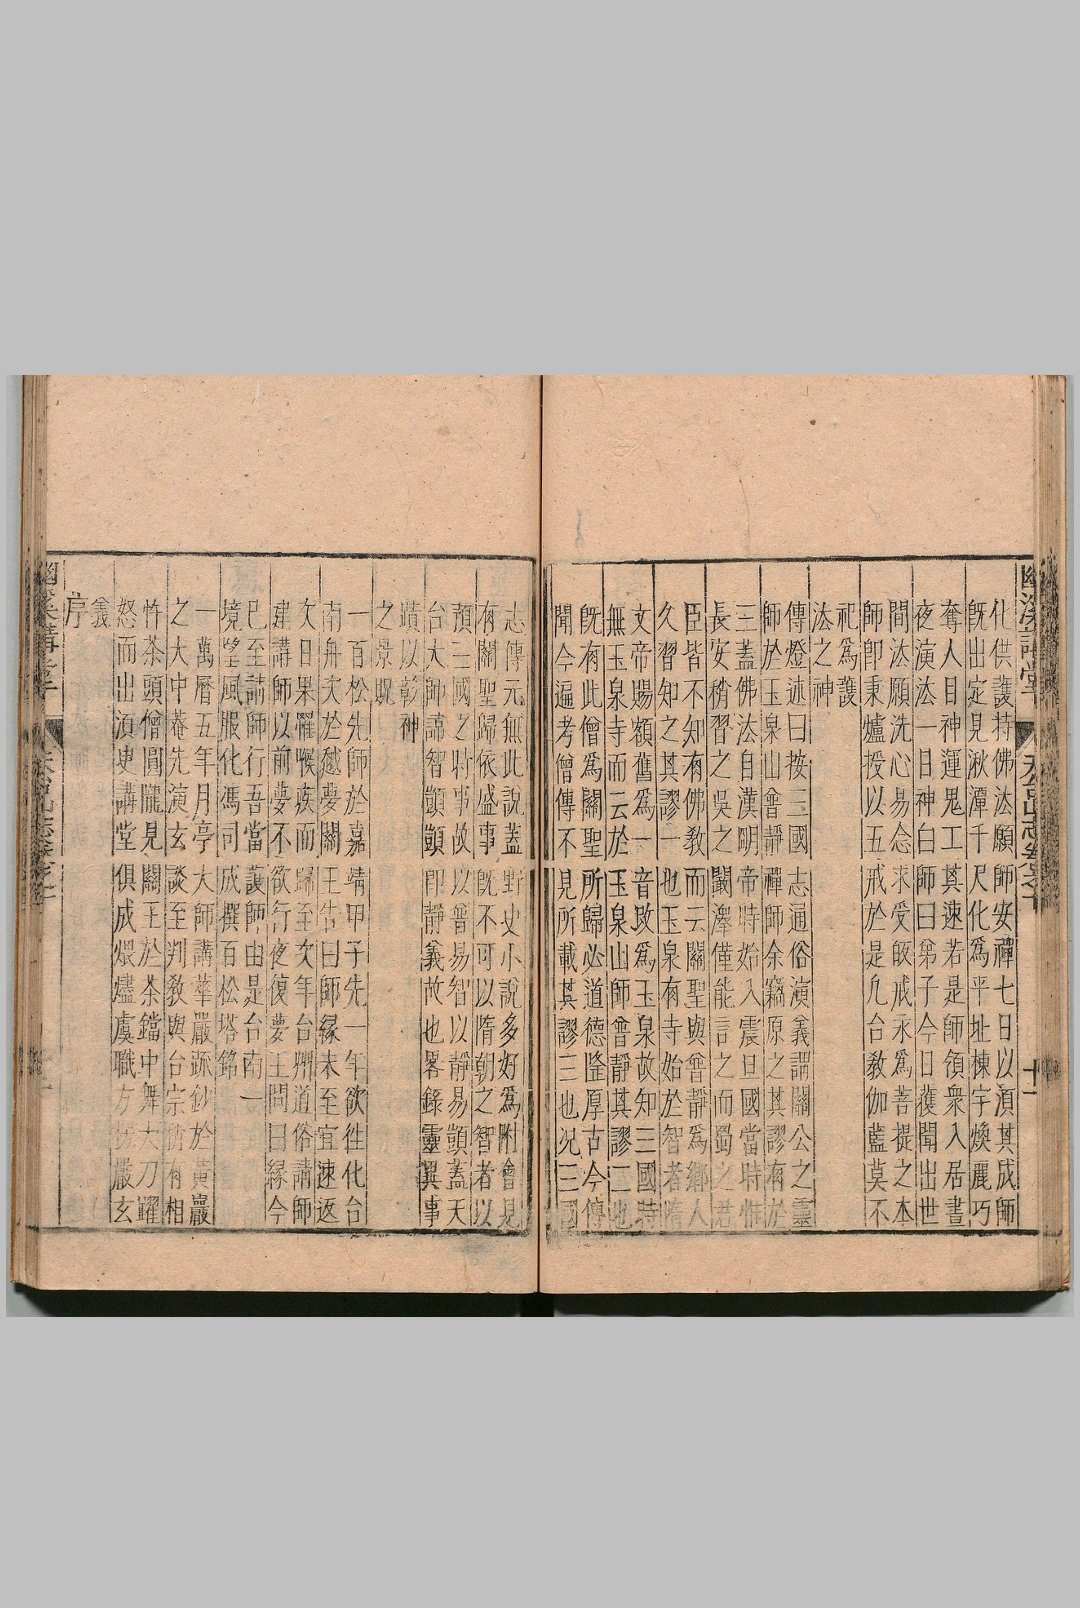 化供護持佛法願師安禪七日以湏其成師
旣出定見湫潭千尺化爲平址棟宇煥麗巧
奪人目神運鬼工其速若是師領衆入居晝
夜演法一日神白師曰弟子今日獲聞出世
間法願洗心易念求受戒永爲菩提之本
師卽秉爐授以五戒於是凡台教伽藍莫不
祀爲護
法之神
傳燈述曰按三國志通俗演義謂關公之靈
師於玉泉山普靜禪師余竊原之其謬有於
三蓋佛法自漢明帝時始入震旦國當時惟
長安稍習之吳之闞澤僅能言之而蜀之君
臣皆不知有佛教而云關聖與普靜爲鄉人
久習知之其謬一也玉泉有寺始於智者隋
文帝賜額舊爲一音改爲玉泉故知三國時
無玉泉寺而云於玉泉山師普靜其謬二也
旣有此僧爲關聖所歸必道德隆厚古今傳
聞今遍考僧傳不見所載其謬三也况三國
志傳元無此說蓋野史小說多好爲附會見
有關聖歸依盛事旣不可以隋朝之智者以
預三國之時事故以普易智以靜易顗蓋天
台大師諱智顗顗卽靜義故也畧錄靈異事
蹟以彰神
之景貺
一百松先師於嘉靖甲子先一年欲往化台
南舟次於越夢關王告曰師緣未至宜速返
次日果罹喉疾而歸至次年台州道俗請師
建講師以前夢不欲行夜復夢王問曰縁今
已至請師行吾當護師由是台南一
境望風服化馮司成撰百松塔銘
一萬曆五年月亭大師講華嚴疏鈔於黃巖
之大中菴先演玄談至判教與台宗有相
忤茶頭僧圓朧見關王於茶鐺中舞大刀躍
怒而出湏臾講堂俱成煨燼虞職方嚴玄
義
序